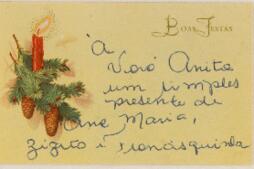 Boas Festas
"A
Vovó Anita
um simples
presente de
Ana Maria,
Zizito e Francisquinha